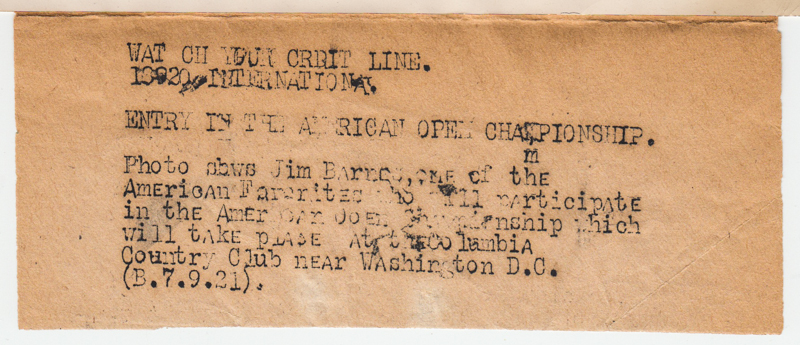 WAT CH YOUR CREIT LINE.
18820, INTERNATIONA.
ENTRY IN THE AMERICAN OPEN CHAMPIONSHIP.
m
Photo shws Jim Barnes, one of the
American Favorites who will participate
in the American Open Championship which
will take plase at the Columbia
Country Club near Washington D.C.
(B.7.9.21).